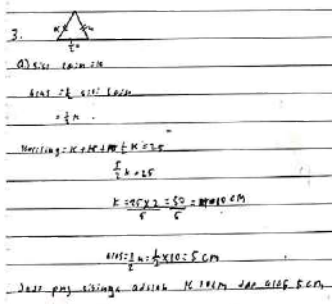 3.
a) sisi lain = k
alas = ½ sisi lain
= ½ k
Keliling = k + k + ½ k = 25
5/2 k = 25
k = 25 x 2 / 5 = 50 / 5 = 10 cm
alas = ½ k = ½ x 10 = 5 cm
Jadi pnj sisinya adalah k 10 cm dan alas 5 cm